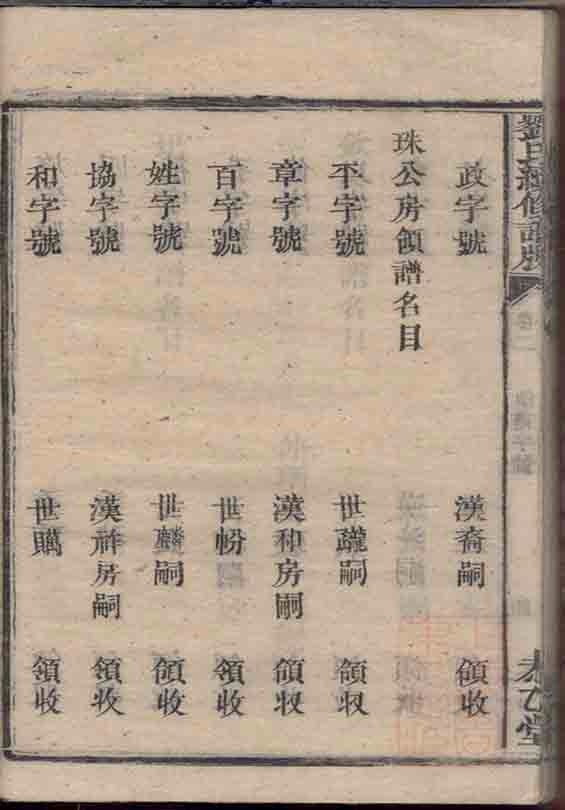 政字號 漢裔嗣 領收
珠公房領譜名目
平字號 世躔嗣 領收
章字號 漢和房嗣 領收
百字號 世枌嗣 領收
姓字號 世麟嗣 領收
協字號 漢祥房嗣 領收
和字號 世購 領收